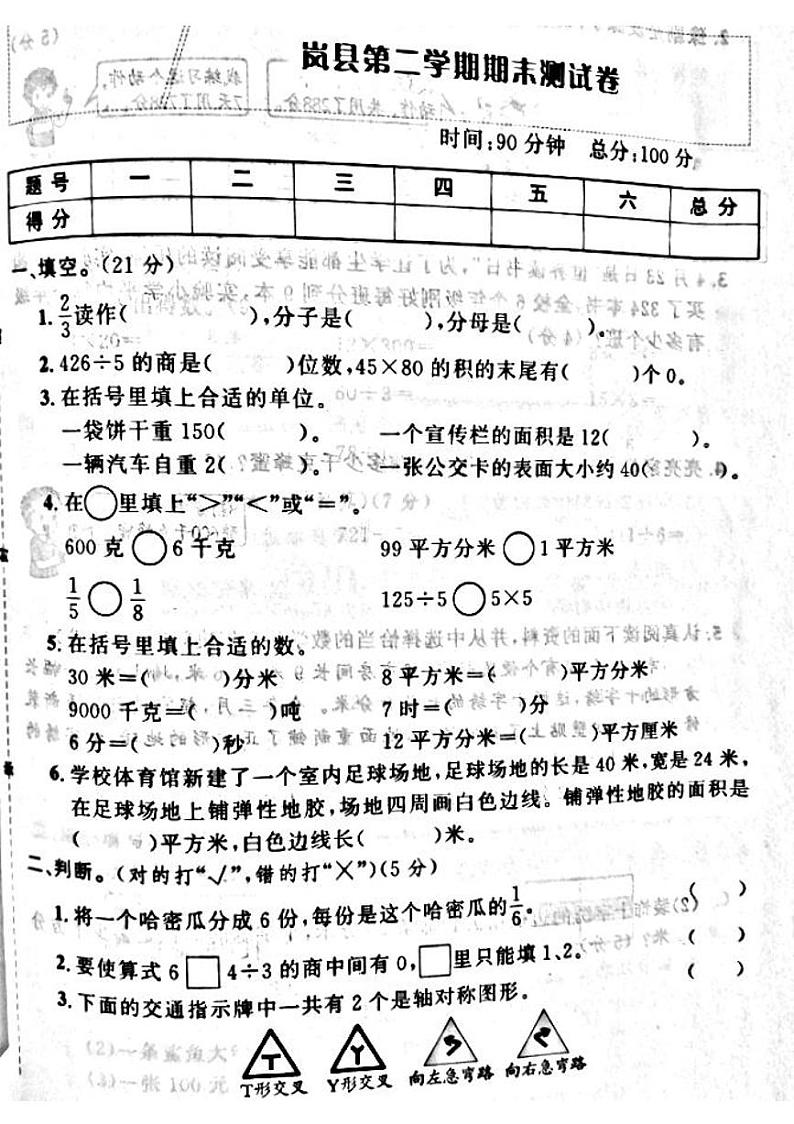 岚县第二学期期末测试卷
时间:90分钟 总分:100分
题号 一 二 三 四 五 六 总分
得分
一、填空。(21分)
1. 2/3读作( ),分子是( ),分母是( )。
2. 426÷5的商是( )位数,45×80的积的末尾有( )个0。
3. 在括号里填上合适的单位。
一袋饼干重150( )。 一个宣传栏的面积是12( )。
一辆汽车自重2( )。 一张公交卡的表面大小约40( )。
4. 在○里填上“>”“<”或“=”。
600克○6千克 99平方分米○1平方米
1/5○1/8 125÷5○5×5
5. 在括号里填上合适的数。
30米=( )分米 8平方米=( )平方分米
9000千克=( )吨 7时=( )分
6分=( )秒 12平方分米=( )平方厘米
6. 学校体育馆新建了一个室内足球场地,足球场地的长是40米,宽是24米,
在足球场地上铺弹性地胶,场地四周画白色边线。铺弹性地胶的面积是
( )平方米,白色边线长( )米。
二、判断。(对的打“√”,错的打“×”)(5分)
1. 将一个哈密瓜分成6份,每份是这个哈密瓜的1/6。 ( )
2. 要使算式6□4÷3的商中间有0,□里只能填1、2。 ( )
3. 下面的交通指示牌中一共有2个是轴对称图形。 ( )
T形交叉 Y形交叉 向左急弯路 向右急弯路